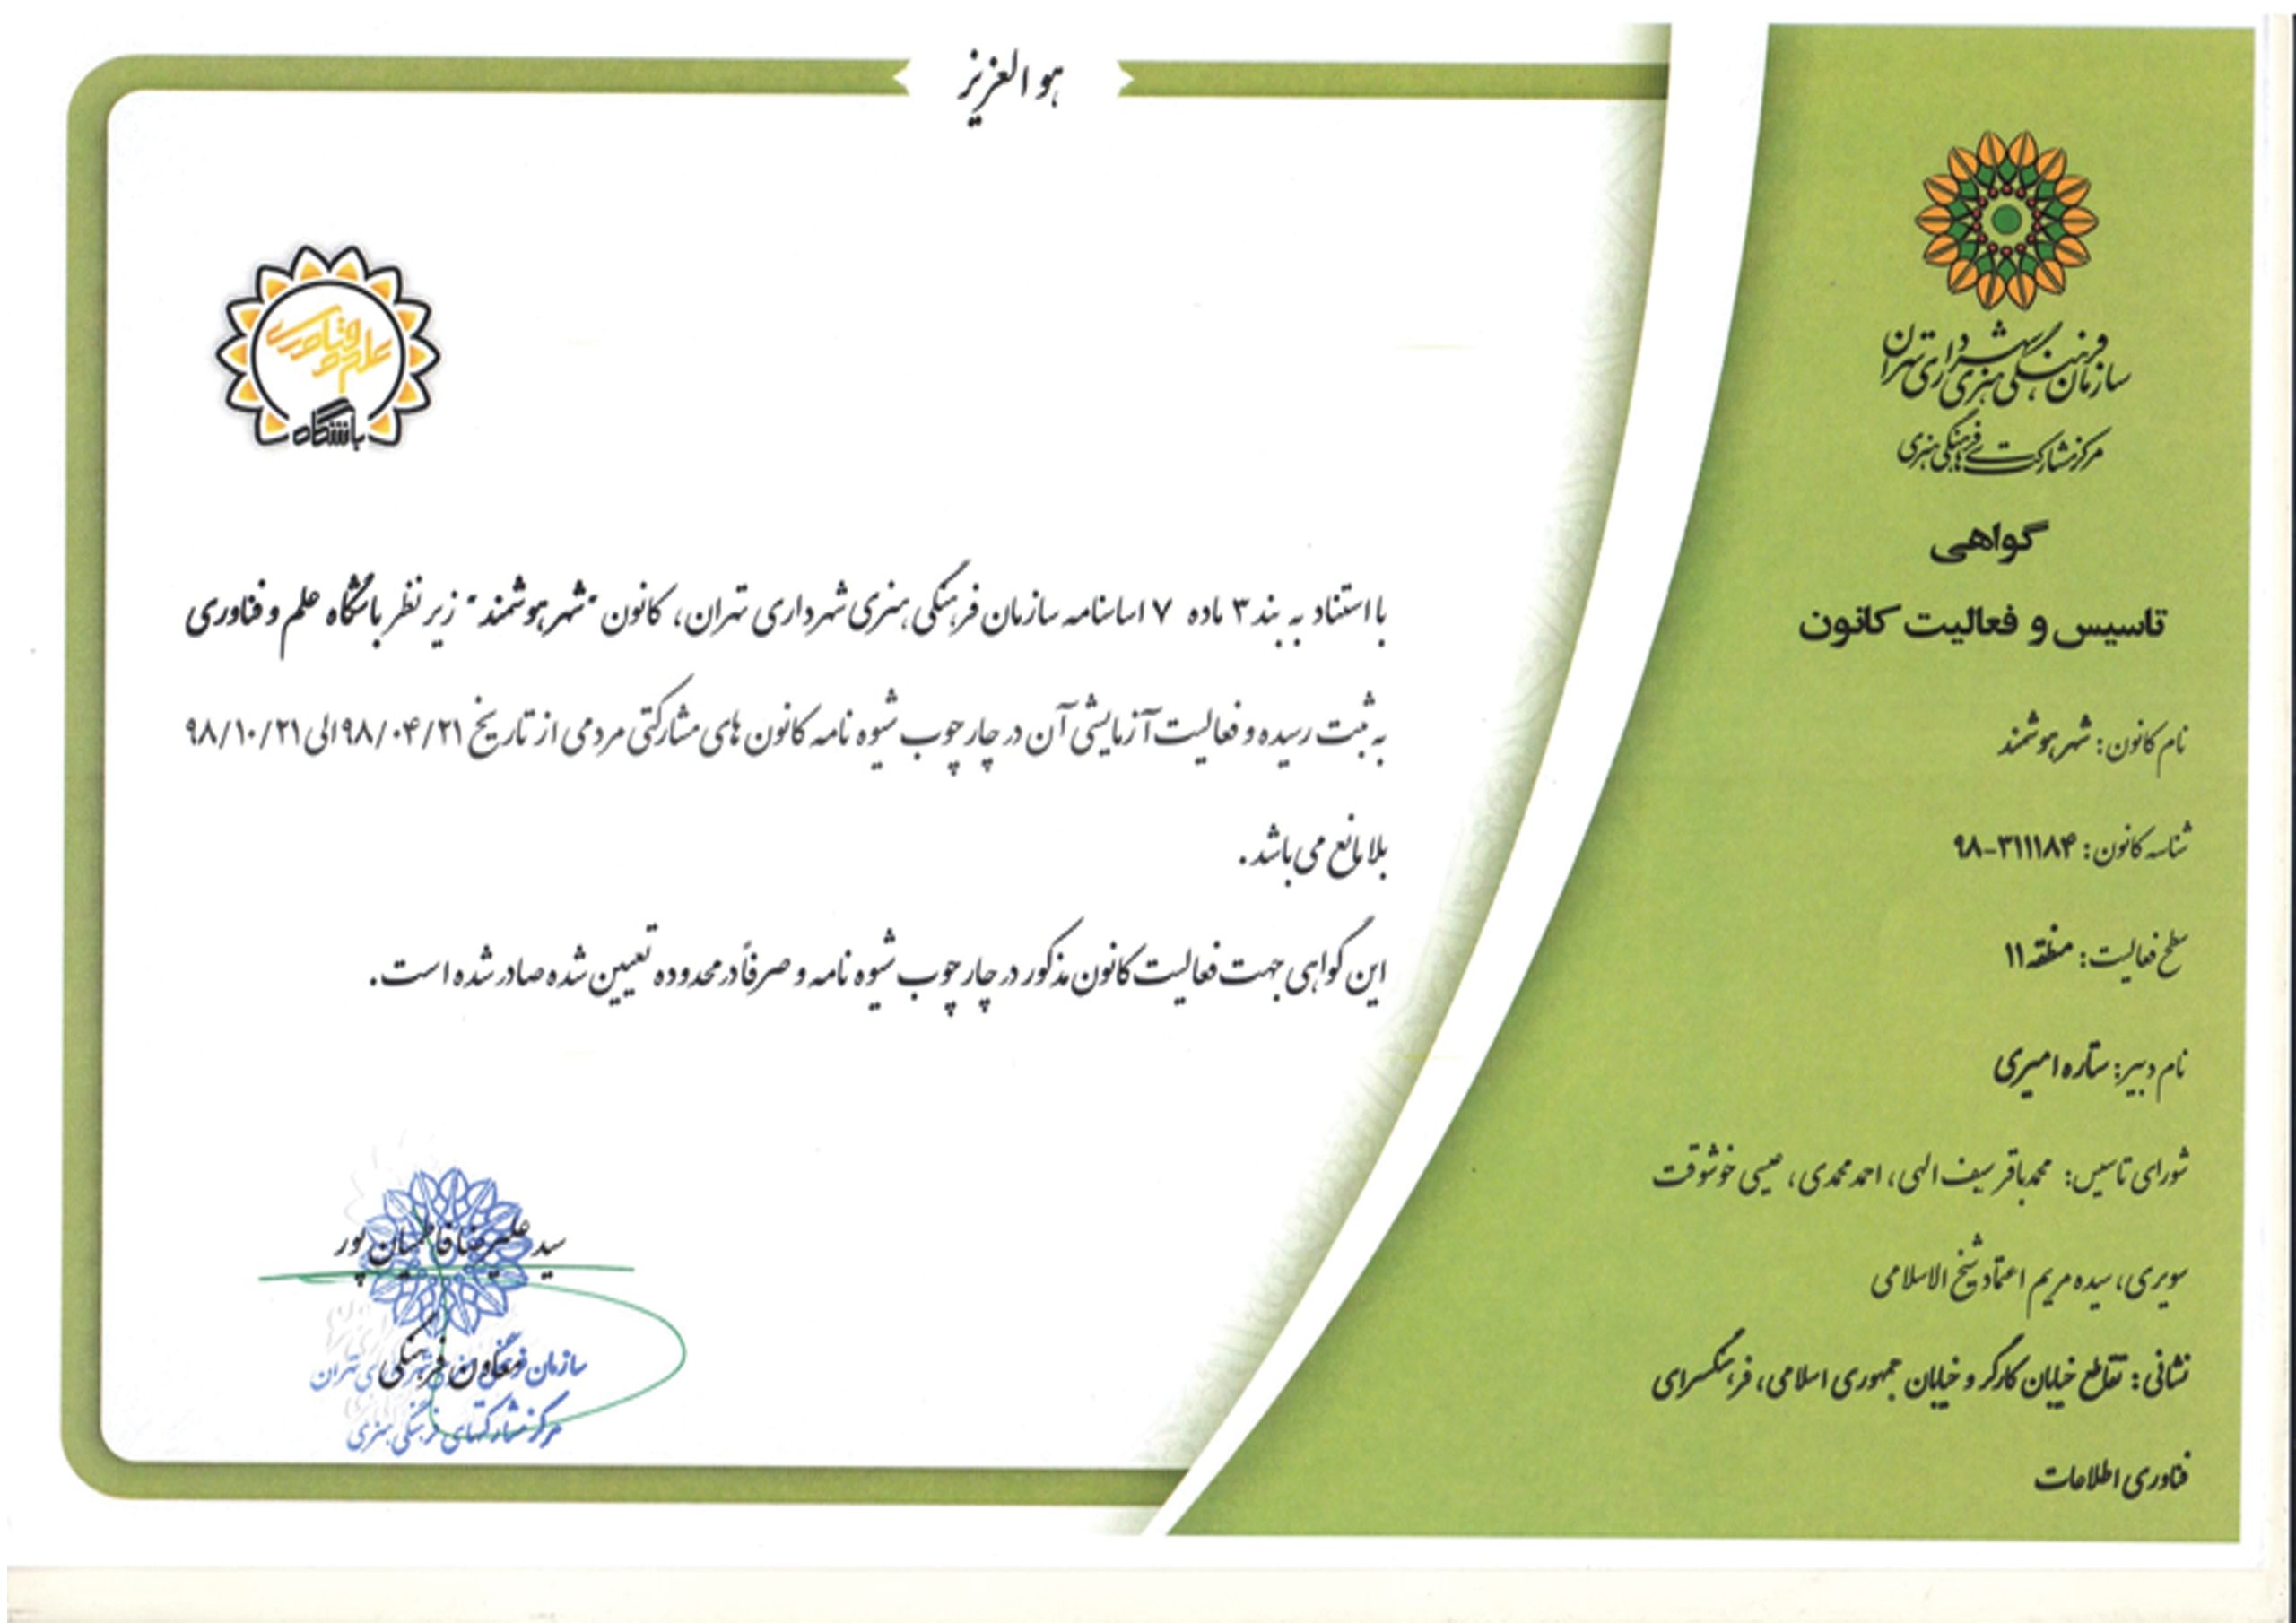 هو العزیز
سازمان فرهنگی هنری شهرداری تهران
مرکز مشارکت‌های فرهنگی هنری
گواهی
تاسیس و فعالیت کانون
نام کانون: شهر هوشمند
شناسه کانون: ۳۱۱۱۸۴-۹۸
سطح فعالیت: منطقه ۱۱
نام دبیر: ستاره امیری
شورای تاسیس: محمدباقر سیف الهی، احمد محمدی، عیسی خوشوقت
سویری، سیده مریم اعتماد شیخ الاسلامی
نشانی: تقاطع خیابان کارگر و خیابان جمهوری اسلامی، فرهنگسرای
فناوری اطلاعات
علم و فناوری
باشگاه
با استناد به بند ۳ ماده ۷ اساسنامه سازمان فرهنگی هنری شهرداری تهران، کانون "شهر هوشمند" زیر نظر باشگاه علم و فناوری
به ثبت رسیده و فعالیت آزمایشی آن در چارچوب شیوه نامه کانون های مشارکتی مردمی از تاریخ ۹۸/۰۴/۲۱ الی ۹۸/۱۰/۲۱
بلامانع می باشد.
این گواهی جهت فعالیت کانون مذکور در چارچوب شیوه نامه و صرفاً در محدوده تعیین شده صادر شده است.
سید علیرضا فاطمیان پور
معاون فرهنگی
سازمان فرهنگی هنری شهرداری تهران
مرکز مشارکتهای فرهنگی هنری